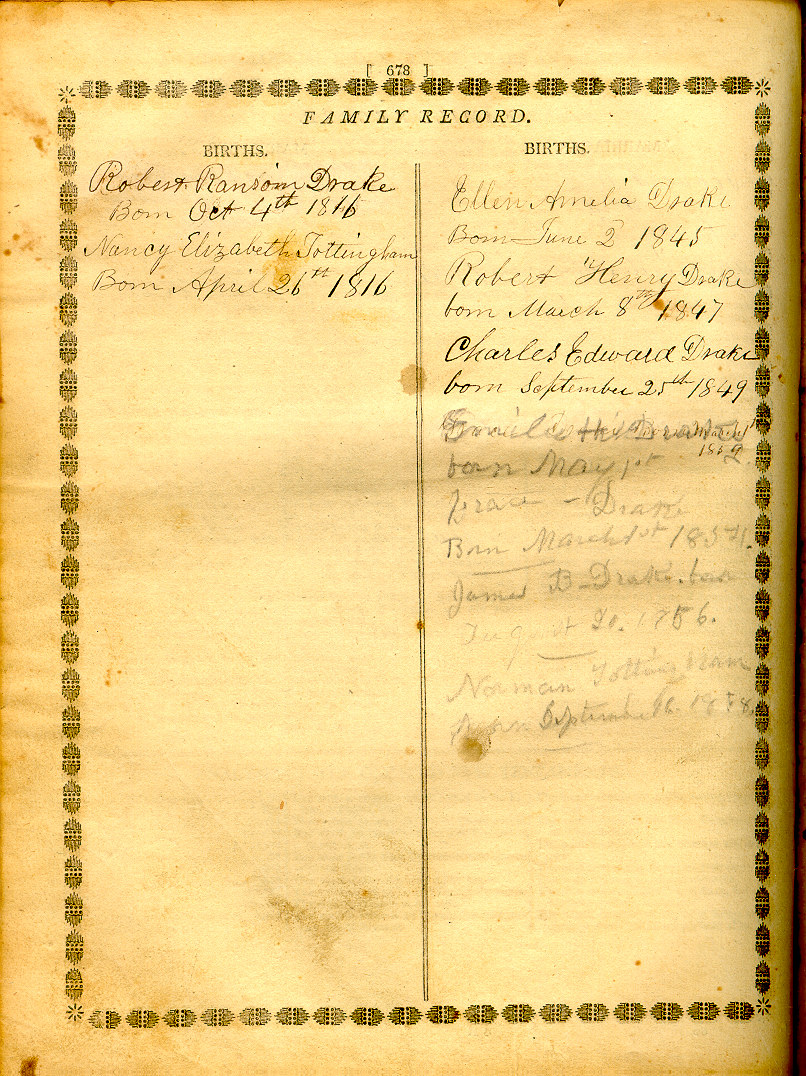 [ 678 ]
FAMILY RECORD.
BIRTHS.
Robert Ransom Drake
Born Oct 4th 1816
Nancy Elizabeth Tottingham
Born April 26th 1816
BIRTHS.
Ellen Amelia Drake
Born June 2 1845
Robert Henry Drake
born March 8th 1847
Charles Edward Drake
born September 25th 1849
Drake
born May 1st
Grace - Drake
Born March 1st 1854.
James B Drake
20. 1856.
Norman Tottingham
Born September 16. 1858.